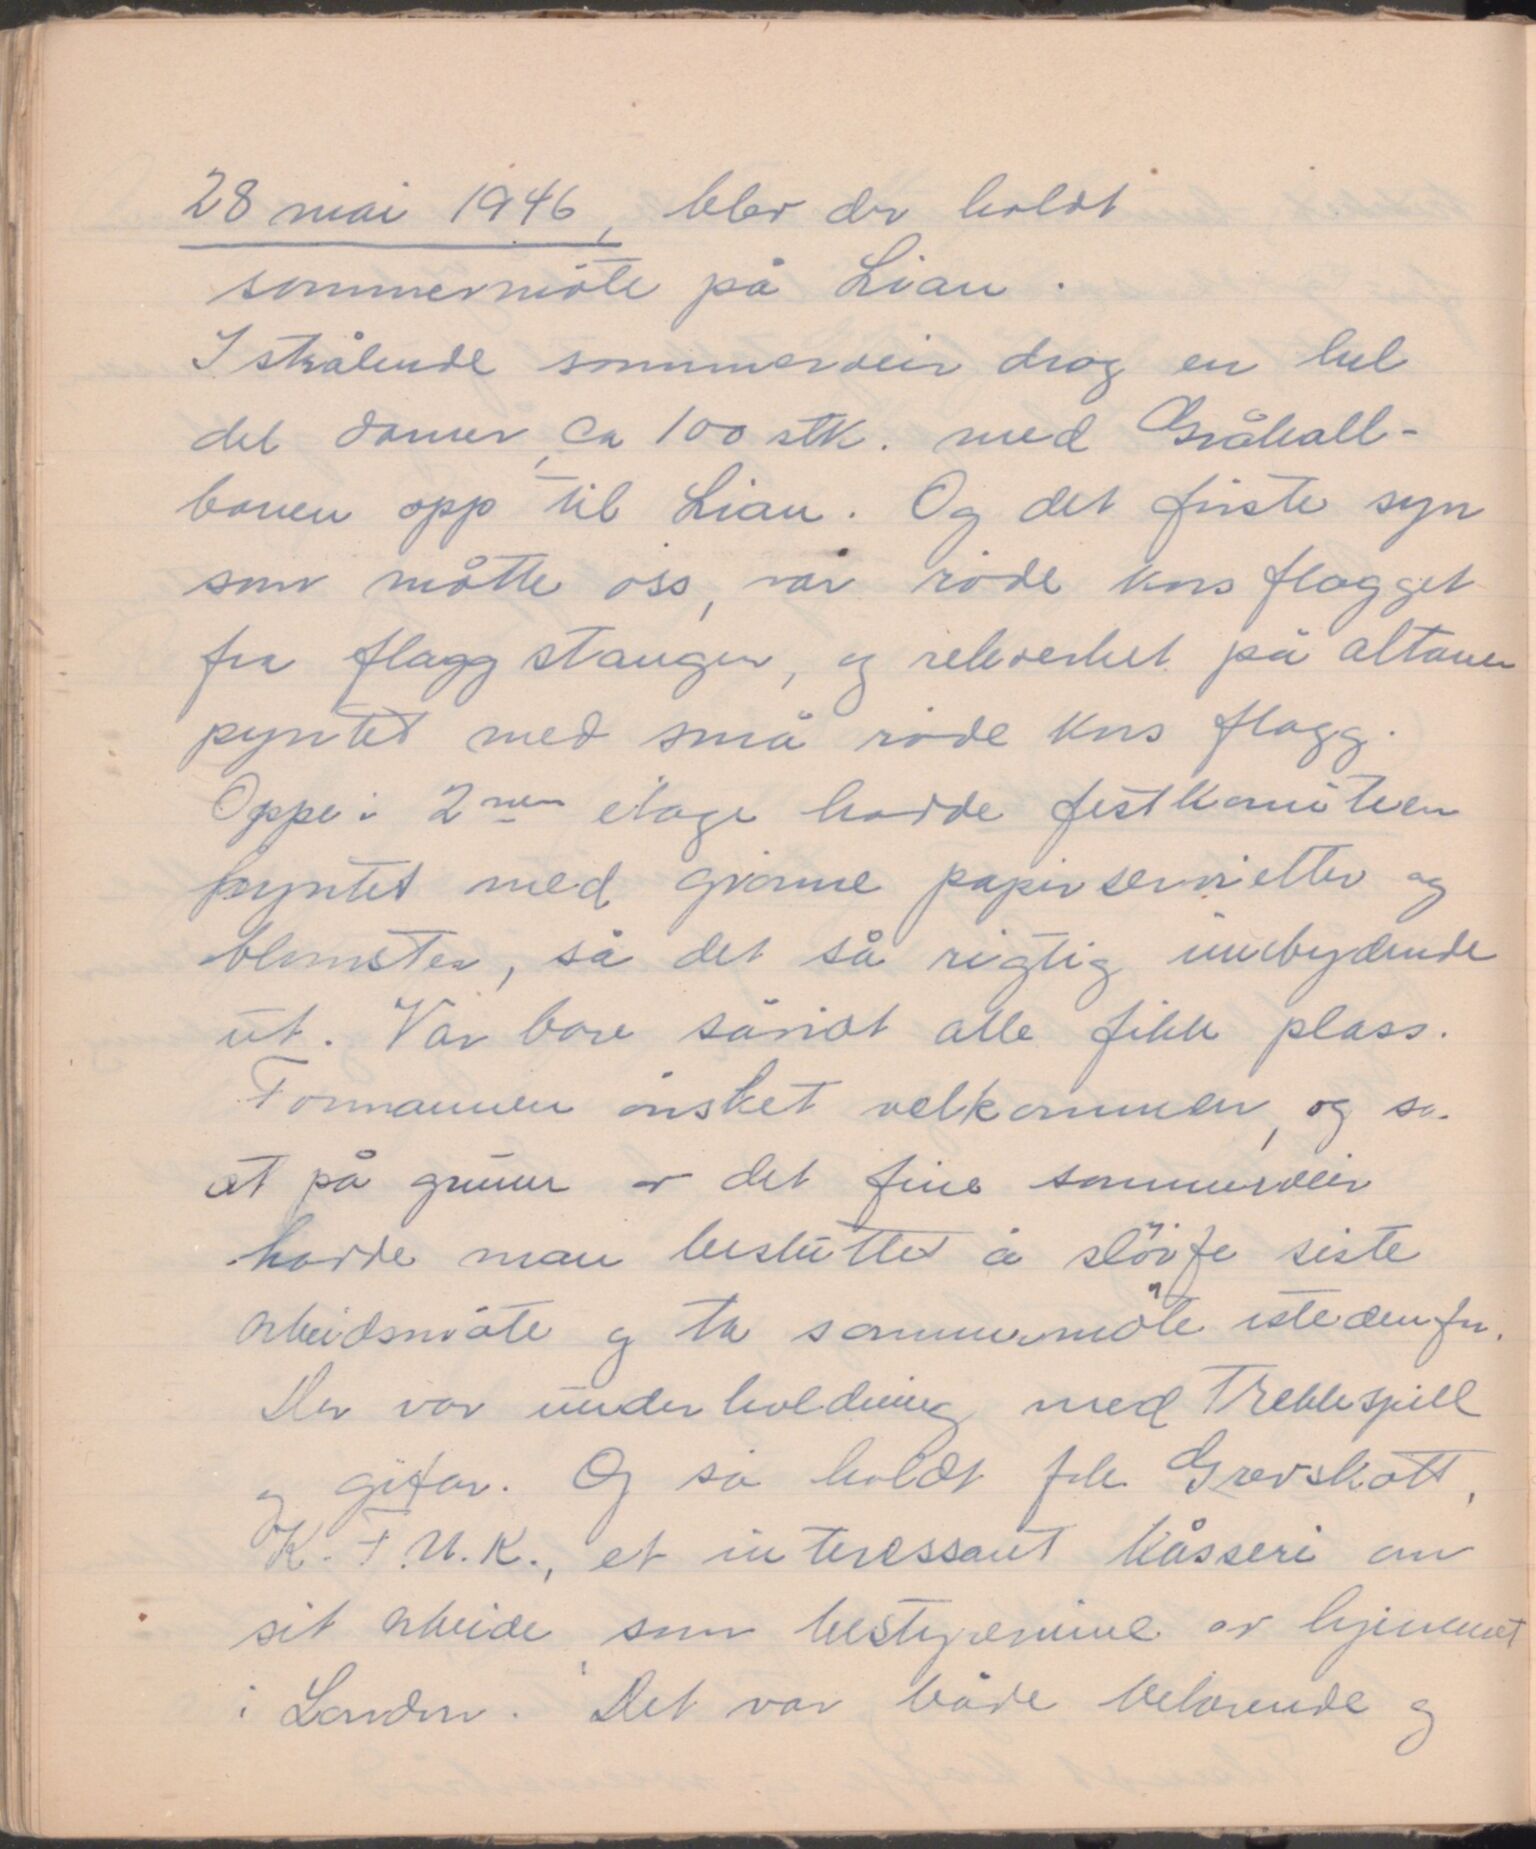 28 mai 1946, blev der holdt
sommermöte på Lian.
I strålende sommerveir drog en hel
del damer, ca 100 stk. med Gråkall-
banen opp til Lian. Og det første syn
som møtte oss, var röde kors flagget
fra flaggstangen, og rekverket på altanen
pyntet med små röde kors flagg.
Oppe i 2nen etage hadde festkomiteen
pyntet med grönne papirservietter og
blomster, så det så rigtig innbydende
ut. Var bare såvidt alle fikk plass.
Formannen önsket velkommen, og sa
at på grunn av det fine sommerveir
hadde man besluttet å slöife siste
arbeidsmöte og ta sommermöte istedenfor.
Der var underholdning med Trekkspill
og gitar. Og så holdt frk. Grevskott,
K.F.U.K., et interessant kåsseri om
sit arbeide, som bestyrerinne av hjemmet
i London. Det var både belærende og